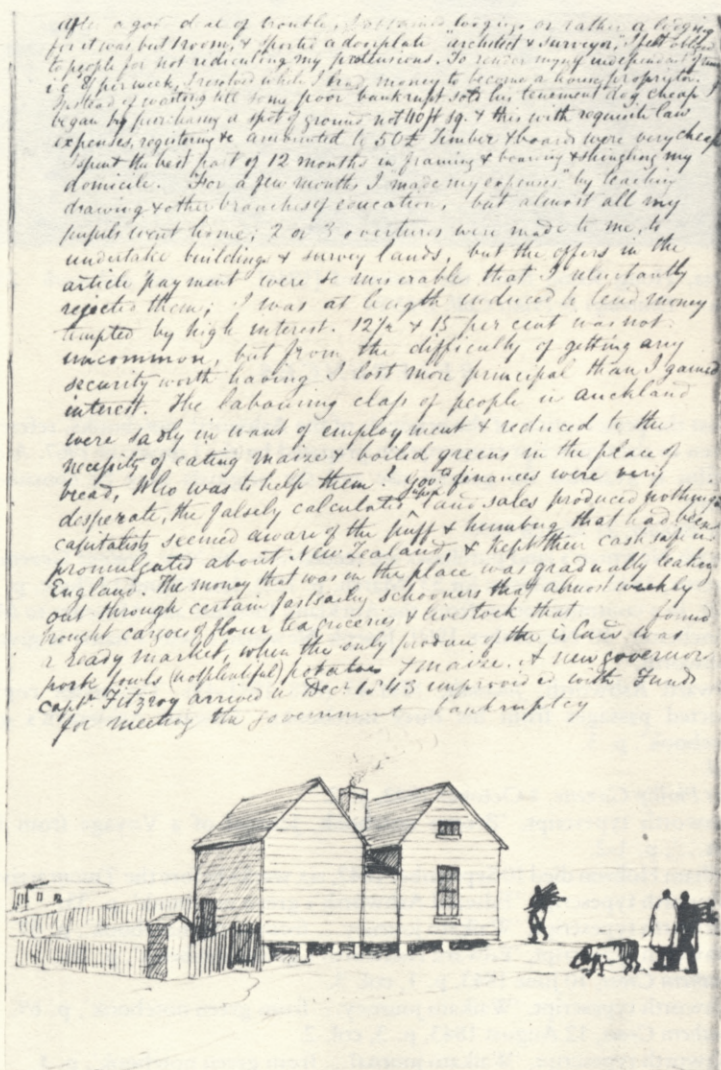 After a good deal of trouble, I obtained lodgings or rather a lodging
for it was but 1 room, & sported a doorplate "architect & surveyor," I felt obliged
to people for not ridiculing my pretensions. To render myself independent of
i.e. 8/ per week, I resolved while I had money to become a house proprietor.
Instead of waiting till some poor bankrupt sold his tenement dog cheap I
began by purchasing a spot of ground not 40 ft sq. & this with requisite law
expenses, registering &c amounted to 50£ Timber & boards were very cheap
I spent the best part of 12 months in framing & boarding & shingling my
domicile. For a few months I "made my expenses" by teaching
drawing & other branches of education, but almost all my
pupils went home; 2 or 3 overtures were made to me, to
undertake buildings & survey lands, but the offers in the
article payment were so miserable that I reluctantly
rejected them; I was at length induced to lend money
tempted by high interest. 12½ & 15 per cent was not
uncommon, but from the difficulty of getting any
security worth having I lost more principal than I gained
interest. The labouring class of people in Auckland
were sadly in want of employment & reduced to the
necessity of eating maize & boiled greens in the place of
bread, Who was to help them? Govt finances were very
desperate, the falsely calculated land sales produced nothing
capitalists seemed aware of the puff & humbug that had been
promulgated about New Zealand, & kept their cash safe in
England. The money that was in the place was gradually leaking
out through certain fastsailing schooners that almost weekly
brought cargoes of flour tea groceries & livestock that found
a ready market, when the only produce of the island was
pork fowls (not plentiful) potatoes & maize. A new governor
Captn Fitzroy arrived in Decr 1843 unprovided with Funds
for meeting the government bankruptcy